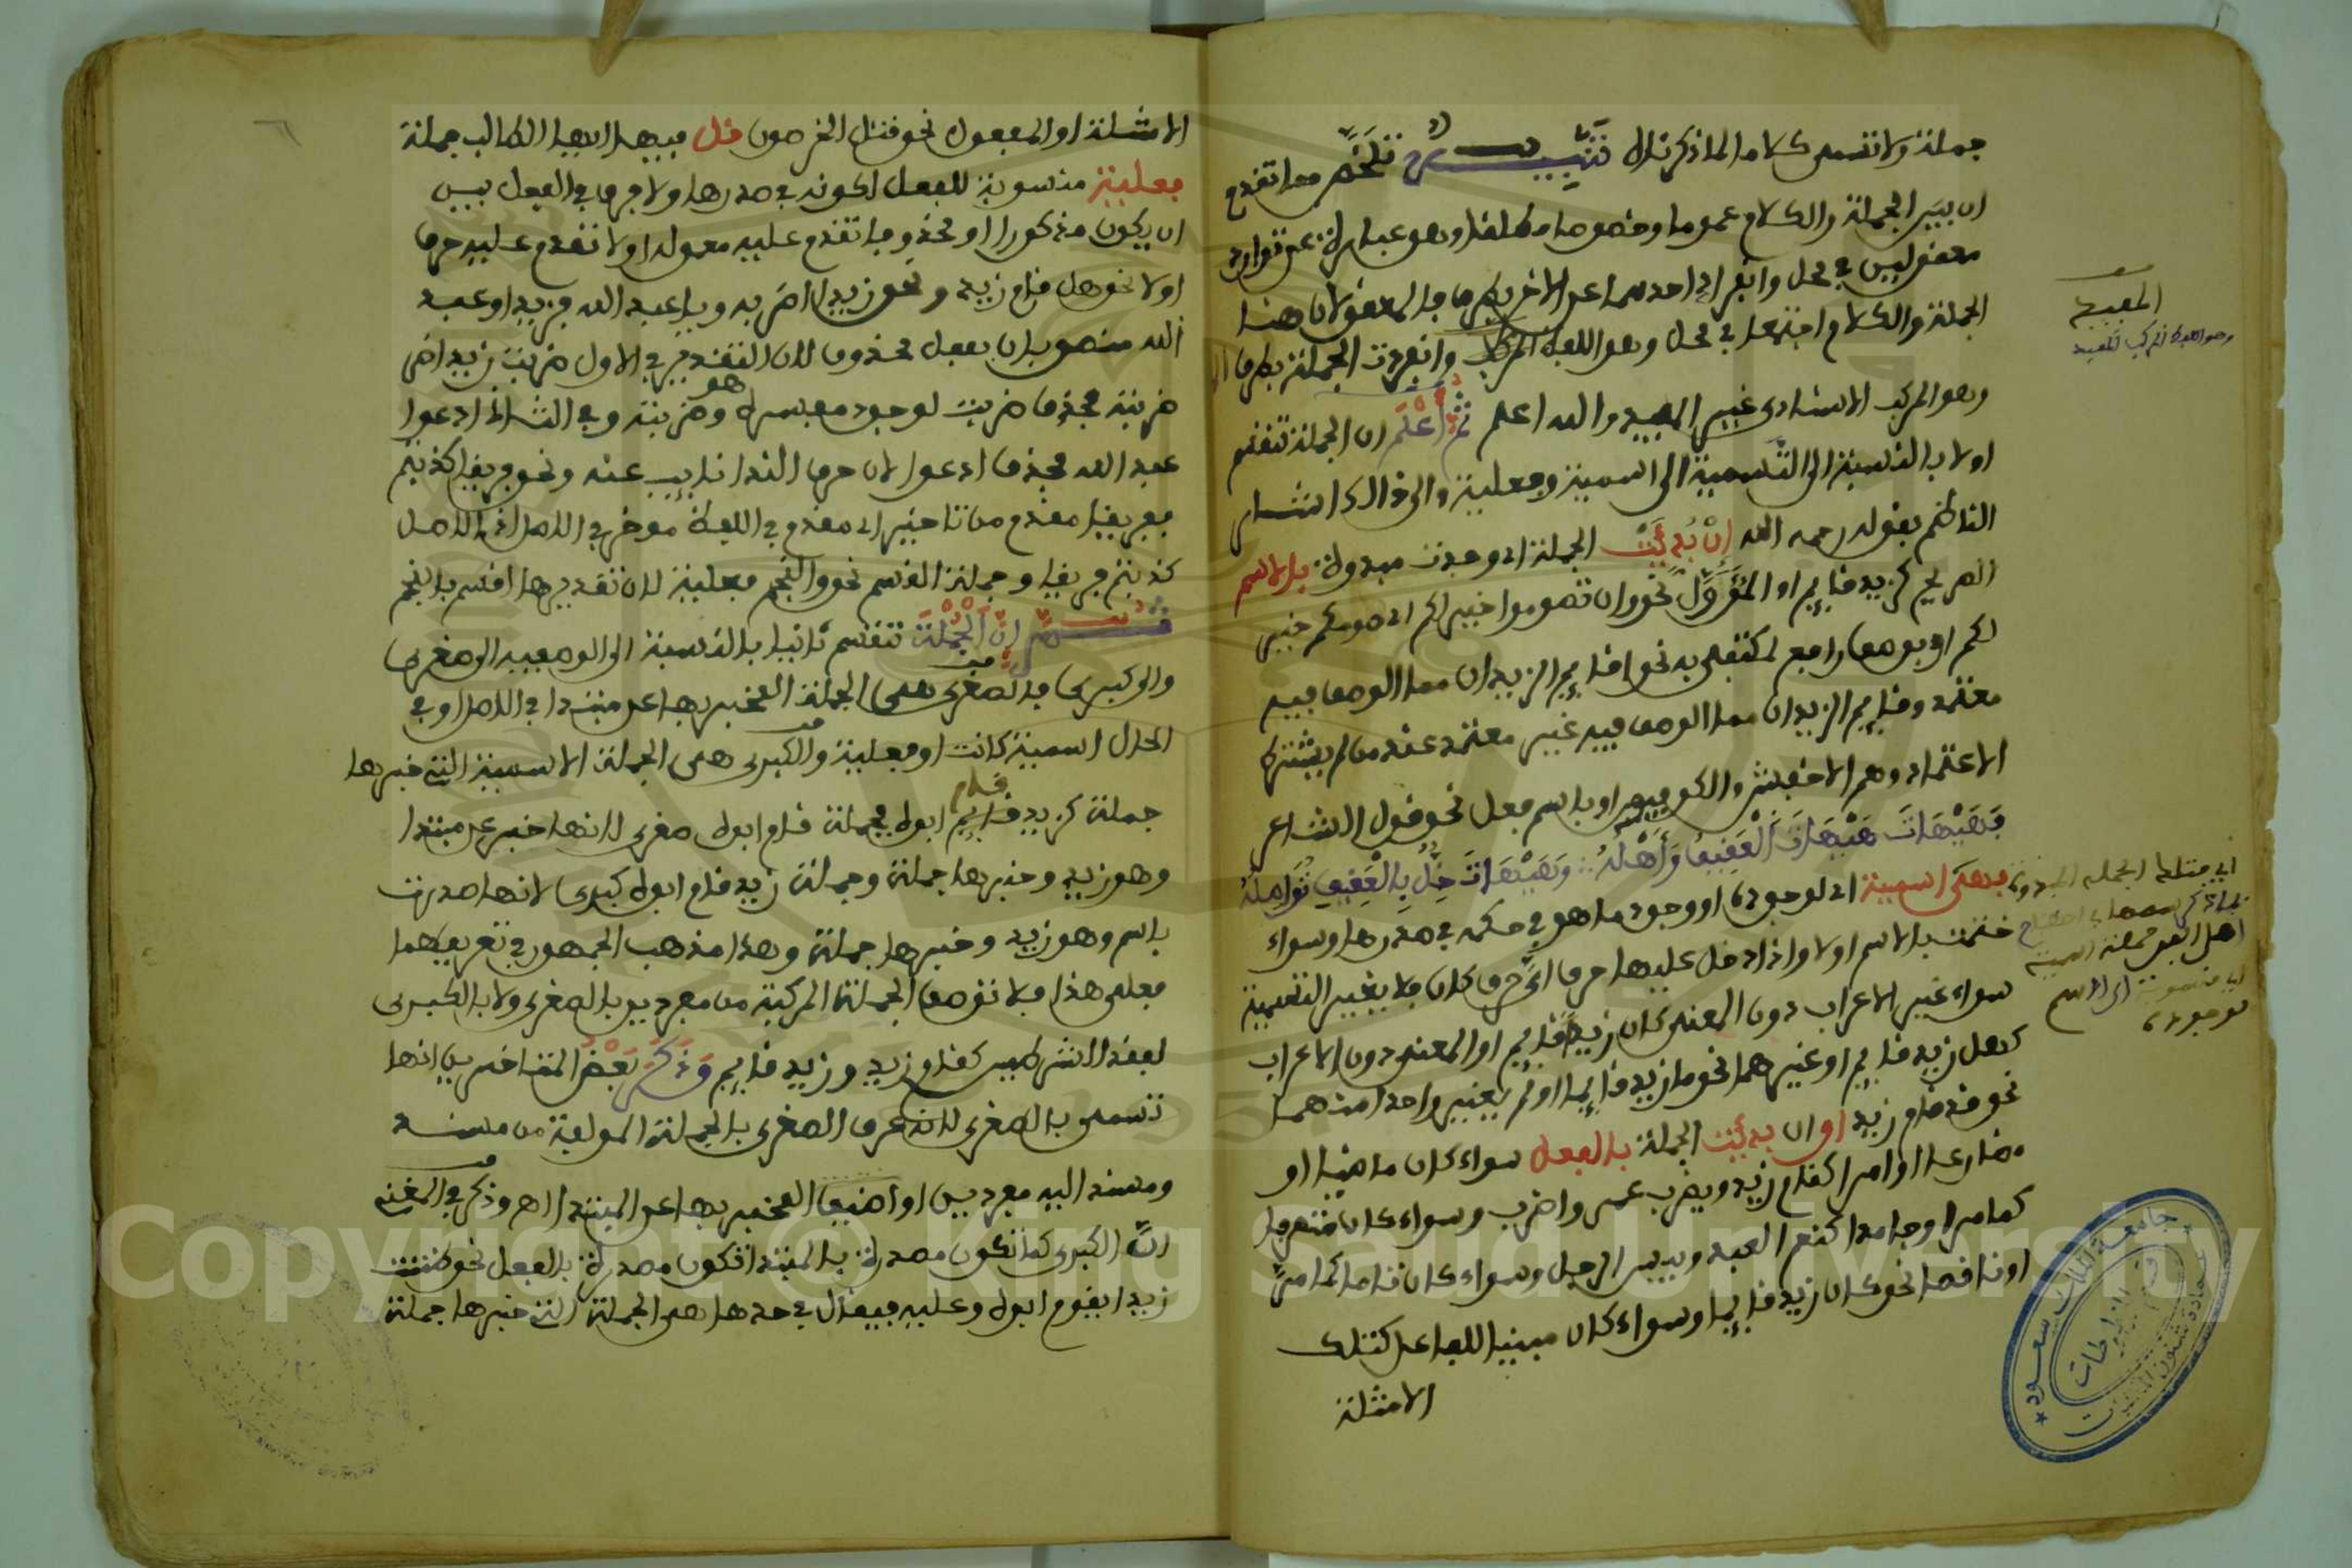 جملة ولا تسمى كلاما لما ذكرناه تنبيه تلخص مما تقدم
ان بين الجملة والكلام عموما وخصوصا مطلقا وهو عبارة عن توارد
معقولين في محل وانفراد احدهما عن الاخر بطرف فالمعقولان هنا
الجملة والكلام اجتمعا في محل وهو اللفظ المركب وانفردت الجملة بطرف
وهو المركب الاسنادي غير المفيد والله اعلم ثم اعلم ان الجملة تنقسم
اولا بالنسبة الى التسمية الى اسمية وفعلية والى ذالك اشار
الناظم بقوله رحمه الله ان بدئت الجملة اي وجدت مبدوة بالاسم
الصريح كزيد قايم او المؤول نحو وان تصوموا خير لكم اي صومكم خير
لكم او بوصف رافع لمكتفى به نحو اقايم الزيدان مما الوصف فيه
معتمد وقايم الزيدان مما الوصف فيه غير معتمد عند من لم يشترط
الاعتماد وهم الاخفش والكوفيون او باسم فعل نحو قول الشاعر
فهيهات هيهات العقيق واهله وهيهات خل بالعقيق نواصله
فهى اسمية اي لوجوده او وجود ما هو في حكمه في صدرها وسواء
ختمت بالاسم اولا واذا دخل عليها حرف اي حرف كان فلا يغير التسمية
سواء غير الاعراب دون المعنى كان زيدا قايم او المعنى دون الاعراب
كهل زيد قايم او غيرهما نحو ما زيد قايما او لم يغير واحدا منهما
نحو قد قام زيد او ان بدئت الجملة بالفعل سواء كان ماضيا او
مضارعا او امرا كقام زيد ويضرب عمر واضرب وسواء كان متصرفا
كما مر او جامدا كنعم العبد وبيس الرجل وسواء كان تاما كما مر
او ناقصا نحو كان زيد قايما وسواء كان مبنيا للفاعل كتلك
الامثلة
المفيد
وهو اللفظ المركب المفيد
الامثلة او المفعول نحو قتل الخرصون قل فيها ايها الطالب جملة
فعلية منسوبة للفعل لكونه في صدرها ولا فرق في الفعل بين
ان يكون مذكورا او محذوفا تقدم عليه معموله اولا تقدم عليه حرف
اولا نحو هل قام زيد ونحو زيدا اضربه ويا عبد الله فزيدا وعبد
الله منصوبان بفعل محذوف لان التقدير في الاول ضربت زيدا
ضربته فحذف ضربت لوجود مفسره وهو ضربته وفي الثاني ادعوا
عبد الله فحذف ادعوا لان حرف الندا نايب عنه ونحو فريقا كذبتم
ففريقا مقدم من تاخير اي مقدم في اللفظ موخر في الاصل اذ الاصل
كذبتم فريقا وجملة القسم نحو والنجم فعلية لان تقديرها اقسم بالنجم
ثم ان الجملة تنقسم ثانيا بالنسبة الى الوصفية الى صغرى
والى كبرى فالصغرى هى الجملة المخبر بها عن مبتدا في الاصل او في
الحال اسمية كانت او فعلية والكبرى هى الجملة الاسمية التي خبرها
جملة كزيد قام ابوه فجملة قام ابوه صغرى لانها خبر عن مبتدا
وهو زيد وخبرها جملة وجملة زيد قام ابوه كبرى لانها صدرت
باسم وهو زيد وخبرها جملة وهذا مذهب الجمهور في تعريفهما
فعلى هذا فلا توصف الجملة المركبة من مفردين بالصغرى ولا بالكبرى
لفقد الشرطين كقام زيد وزيد قايم وذكر بعض المتاخرين انها
تسمى بالصغرى لانه عرف الصغرى بالجملة المولفة من مسند
ومسند اليه مفردين او اضيف المخبر بها عن المبتدا اهـ وذكر في المغني
ان الكبرى كما تكون مصدرة بالمبتدا تكون مصدرة بالفعل نحو ظننت
زيدا يقوم ابوه وعليه فيقال في حدها هى الجملة التي خبرها جملة
Copyright © King Saud University
جامعة الملك سعود
عمادة شئون المكتبات
المخطوطات